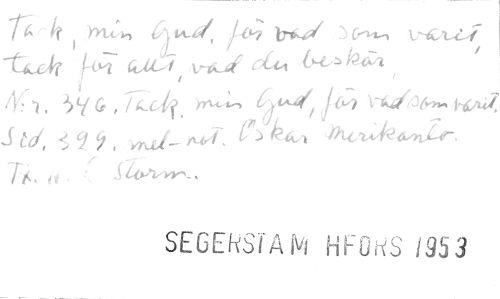 Tack, min Gud, för vad som varit,
tack för allt, vad du beskär,
N:r. 346. Tack, min Gud, för vad som varit.
Sid. 399. mel-not. Oskar Merikanto.
Storm.
SEGERSTAM HFORS 1953